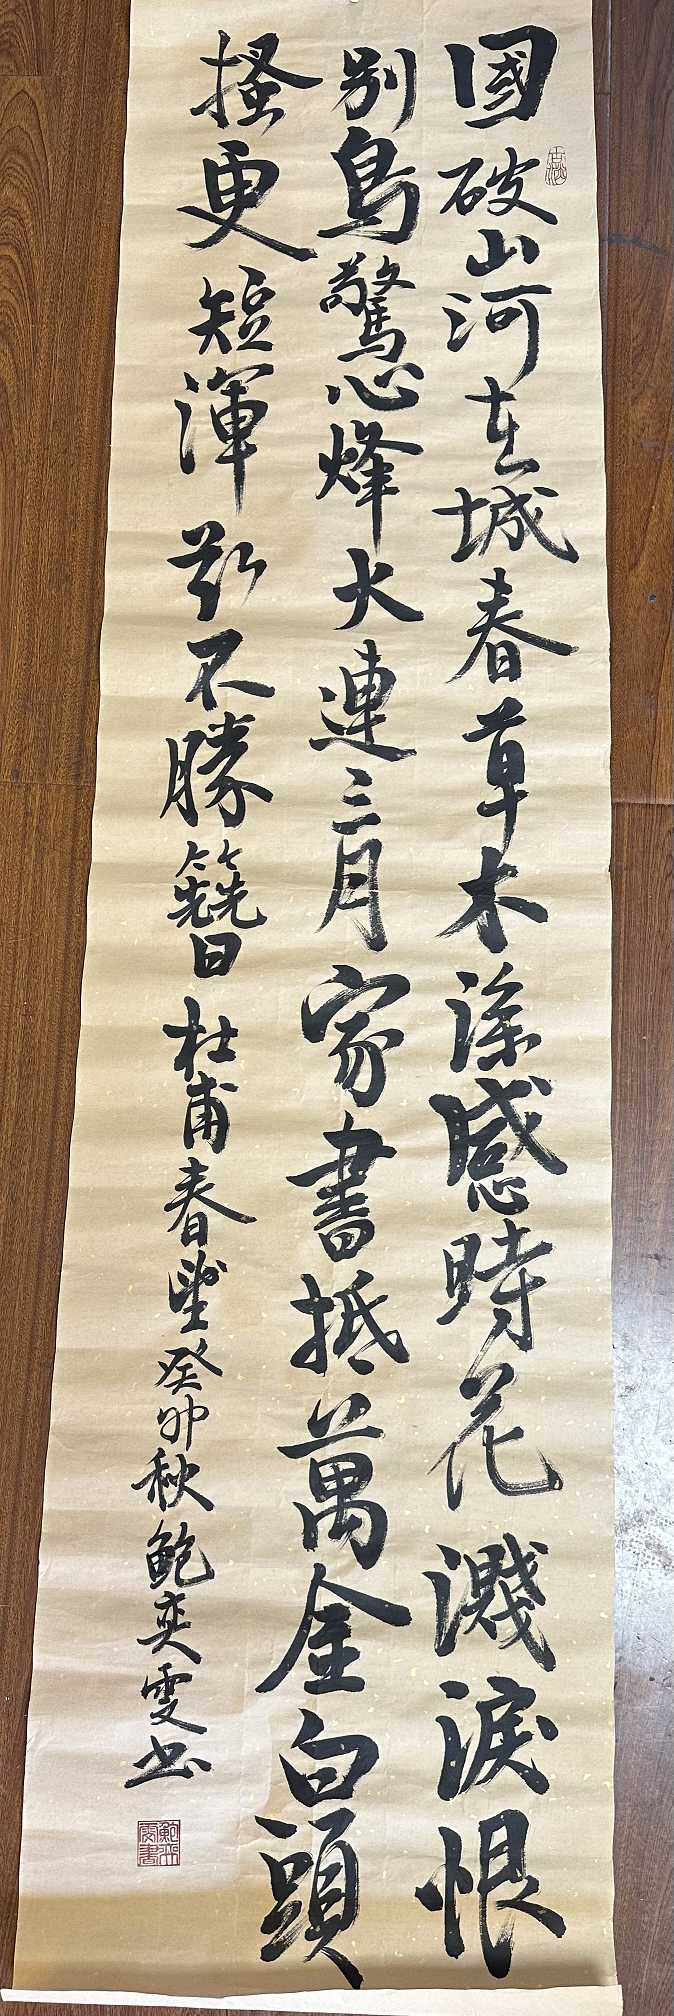 國破山河在城春草木深感時花濺淚恨
別鳥驚心烽火連三月家書抵萬金白頭
搔更短渾欲不勝簪杜甫春望癸卯秋鮑奕雯書
鮑奕雯書